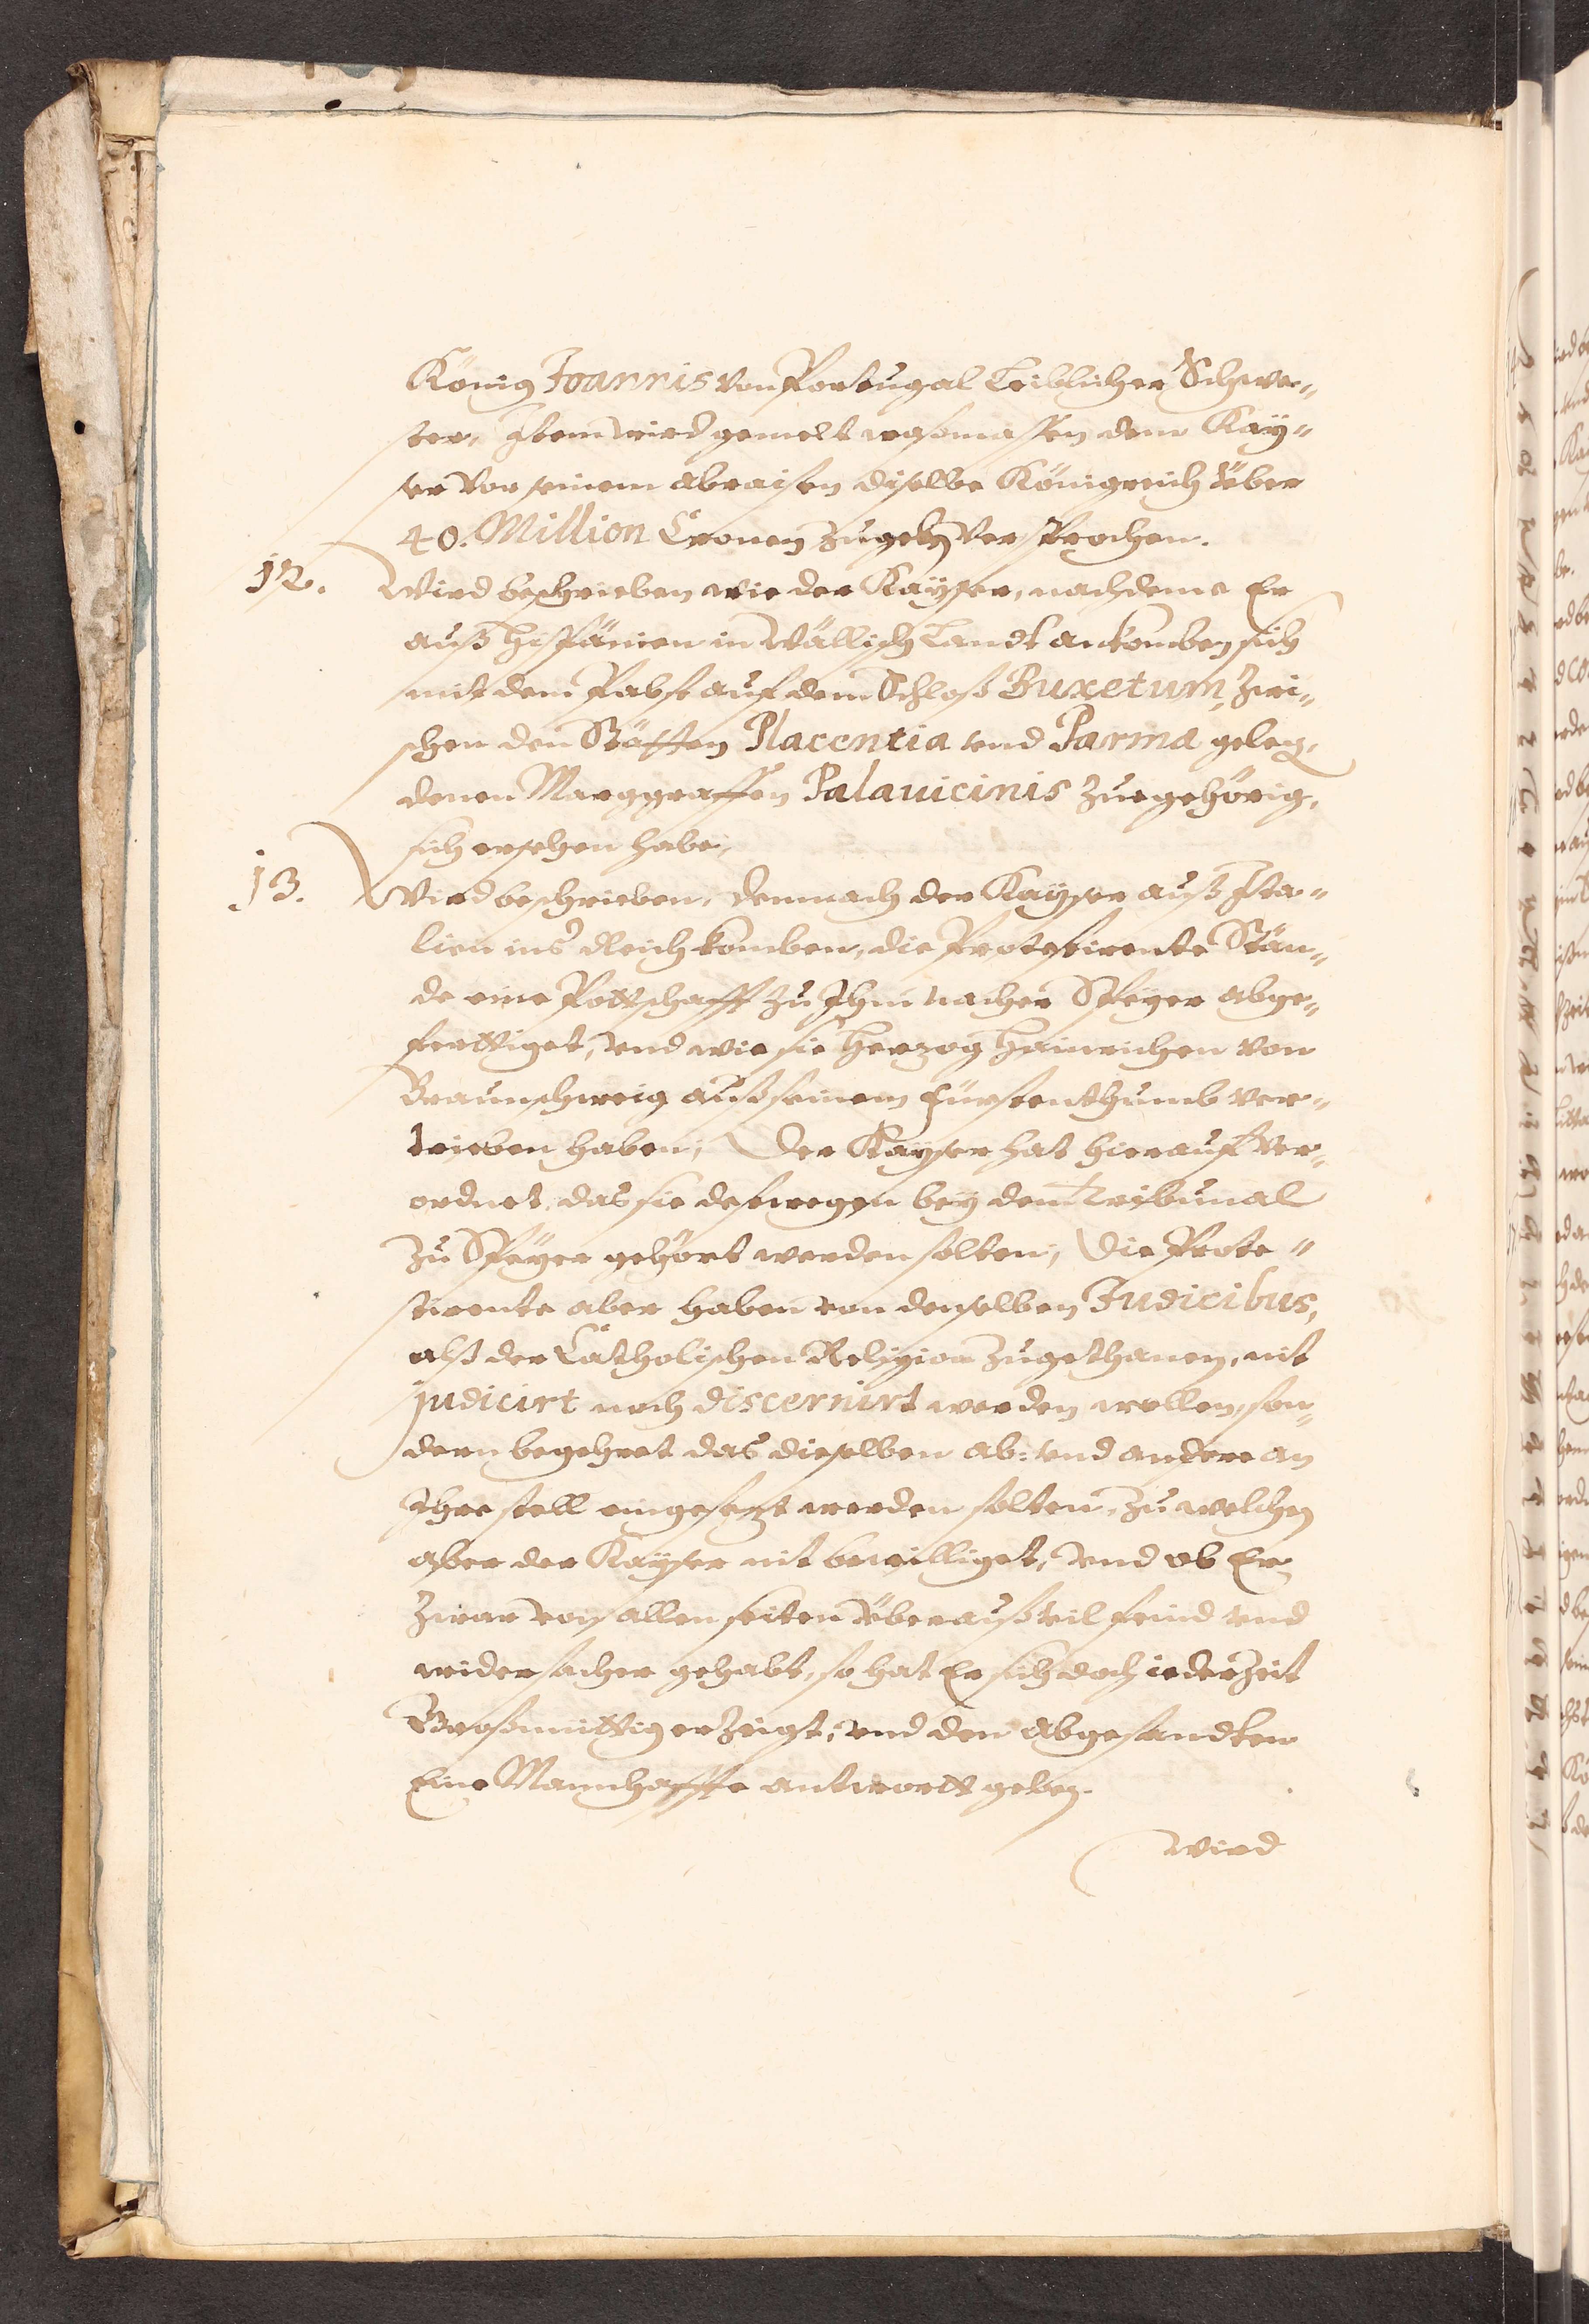 König Joannis von Portugal Leiblicher Schwe„
ster, Item wird gemelt wasmassen dem Kay„
ser vor seinem abraisen diselbe Königreich über
40. Million Cronen zugeben versprochen.
12. Wird beschrieben wie der Kayser, nachdeme Er
auß Hispanien in Wällisch Landt ankomben sich
mit dem Pabst auf dem Schloß Buxetum, zwi„
schen den Stätten Placentia vnd Parma geleg.
denen Marggraffen Palauicinis zuegehörig,
sich ersehen habe,
13. Wird beschrieben, demnach der Kayser auß Ita„
lien ins Reich komben, die Protestirente Stän„
de eine Pottschafft zu Ihm nacher Speyer abge„
ferttiget, vnd wie sie Herzog Hainrichen von
Braunschweig auß seinem Fürstenthumb ver„
trieben haben; Der Kayser hat hierauf ver„
ordnet, das sie deßwegen bey dem Tribunal
zu Speyer gehört werden solten; Die Prote„
stirente aber haben von denselben Judicibus,
alß der Catholischen Religion zugethanen, nit
judicirt noch discernirt werden wollen, son„
dern begehret das dieselben ab: vnd andere an
Ihre stell eingesezt werden solten, zu welchen
aber der Kayser nit bewilliget, vnd ob Er
zwar von allen seiten überauß vil feind vnd
widersacher gehabt, so hat Er sich doch iederzeit
Großmüttig erzeigt; vnd den abgesandten
Eine Mannhaffte antwortt geben.
Wird